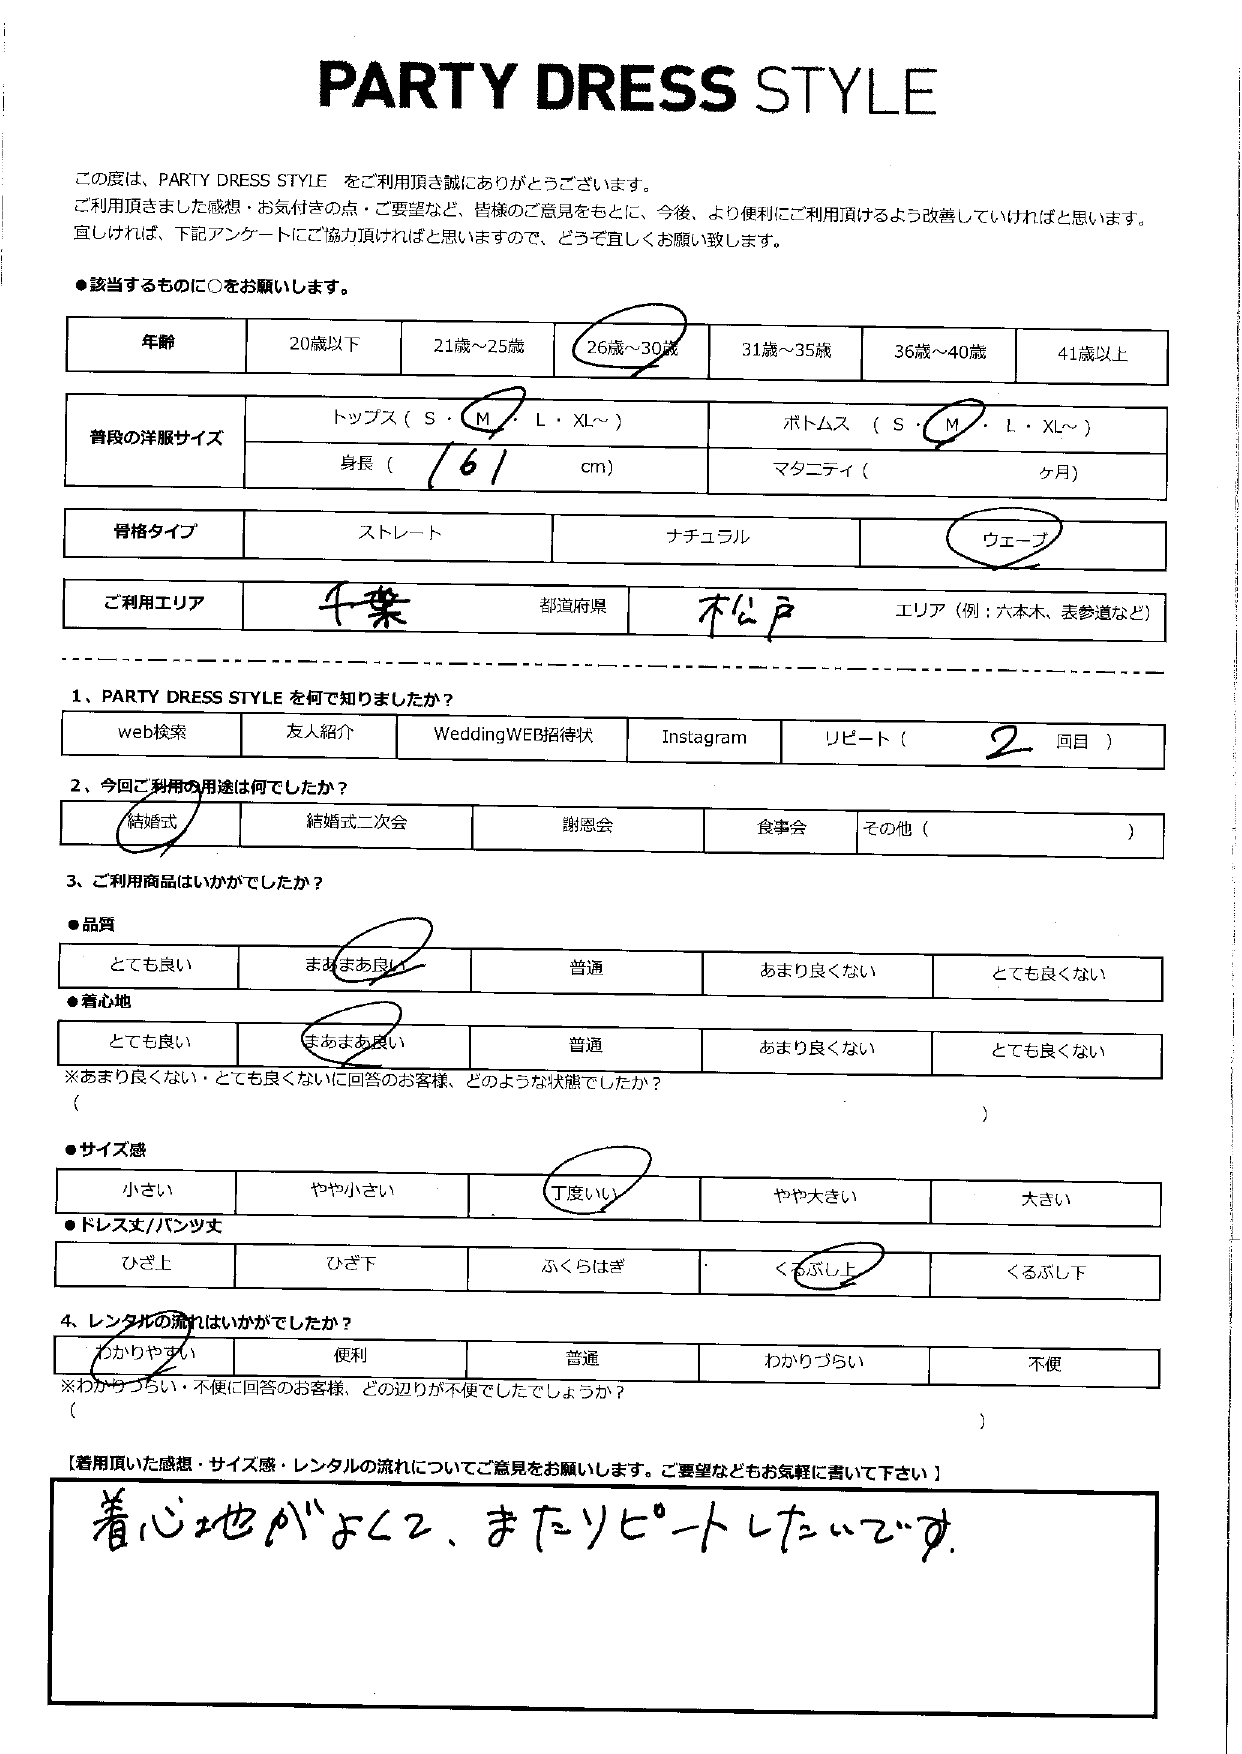 PARTY DRESS STYLE
この度は、PARTY DRESS STYLE をご利用頂き誠にありがとうございます。
ご利用頂きました感想・お気付きの点・ご要望など、皆様のご意見をもとに、今後、より便利にご利用頂けるよう改善していければと思います。
宜しければ、下記アンケートにご協力頂ければと思いますので、どうぞ宜しくお願い致します。
●該当するものに○をお願いします。
年齢 20歳以下 21歳～25歳 26歳～30歳 31歳～35歳 36歳～40歳 41歳以上
普段の洋服サイズ トップス ( S ・ M ・ L ・ XL～ ) ボトムス ( S ・ M ・ L ・ XL～ )
身長 ( 161 cm) マタニティ ( ヶ月)
骨格タイプ ストレート ナチュラル ウェーブ
ご利用エリア 千葉 都道府県 松戸 エリア（例：六本木、表参道など）
1、PARTY DRESS STYLE を何で知りましたか？
web検索 友人紹介 WeddingWEB招待状 Instagram リピート ( 2 回目 )
2、今回ご利用の用途は何でしたか？
結婚式 結婚式二次会 謝恩会 食事会 その他 ( )
3、ご利用商品はいかがでしたか？
●品質
とても良い まあまあ良い 普通 あまり良くない とても良くない
●着心地
とても良い まあまあ良い 普通 あまり良くない とても良くない
※あまり良くない・とても良くないに回答のお客様、どのような状態でしたか？
( )
●サイズ感
小さい やや小さい 丁度いい やや大きい 大きい
●ドレス丈/パンツ丈
ひざ上 ひざ下 ふくらはぎ くるぶし上 くるぶし下
4、レンタルの流れはいかがでしたか？
わかりやすい 便利 普通 わかりづらい 不便
※わかりづらい・不便に回答のお客様、どの辺りが不便でしたでしょうか？
( )
【着用頂いた感想・サイズ感・レンタルの流れについてご意見をお願いします。ご要望などもお気軽に書いて下さい 】
着心地がよくて、またリピートしたいです.